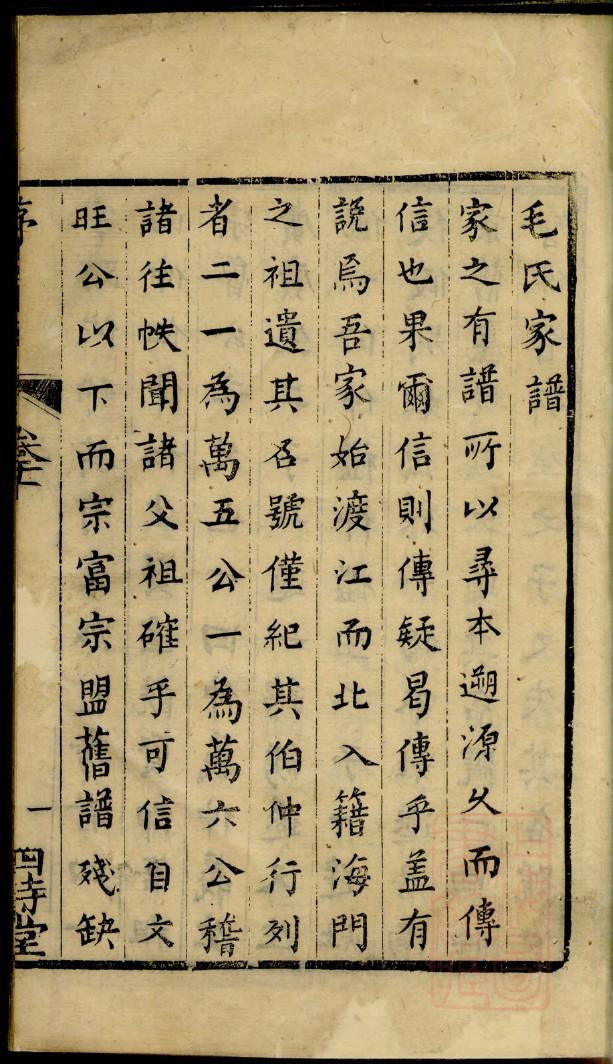 毛氏家譜
家之有譜所以尋本遡源久而傳
信也果爾信則傳疑曷傳乎盖有
說焉吾家始渡江而北入籍海門
之祖遺其名號僅紀其伯仲行列
者二一為萬五公一為萬六公稽
諸往帙聞諸父祖確乎可信自文
旺公以下而宗富宗盟舊譜殘缺
序
一
四持堂